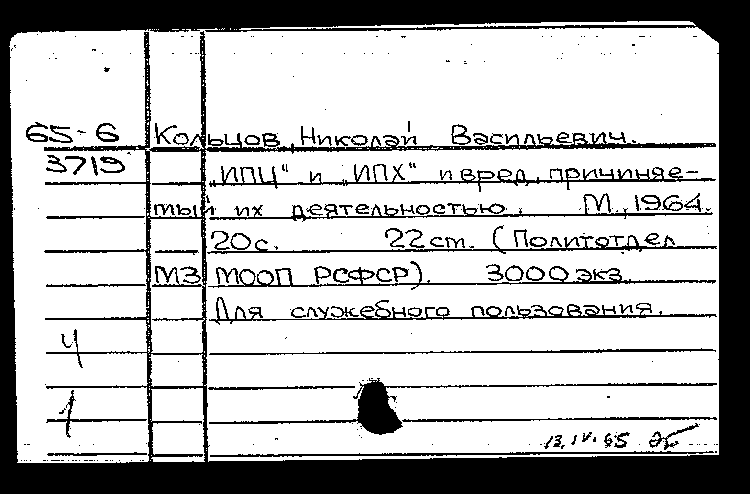 65-6 Кольцов, Николай Васильевич.
3719 „ИПЦ“ и „ИПХ“ и вред, причиняе-
мый их деятельностью. М., 1964.
20 с. 22 см. (Политотдел
МЗ МООП РСФСР). 3000 экз.
Для служебного пользования.
4
1
13.IV.65